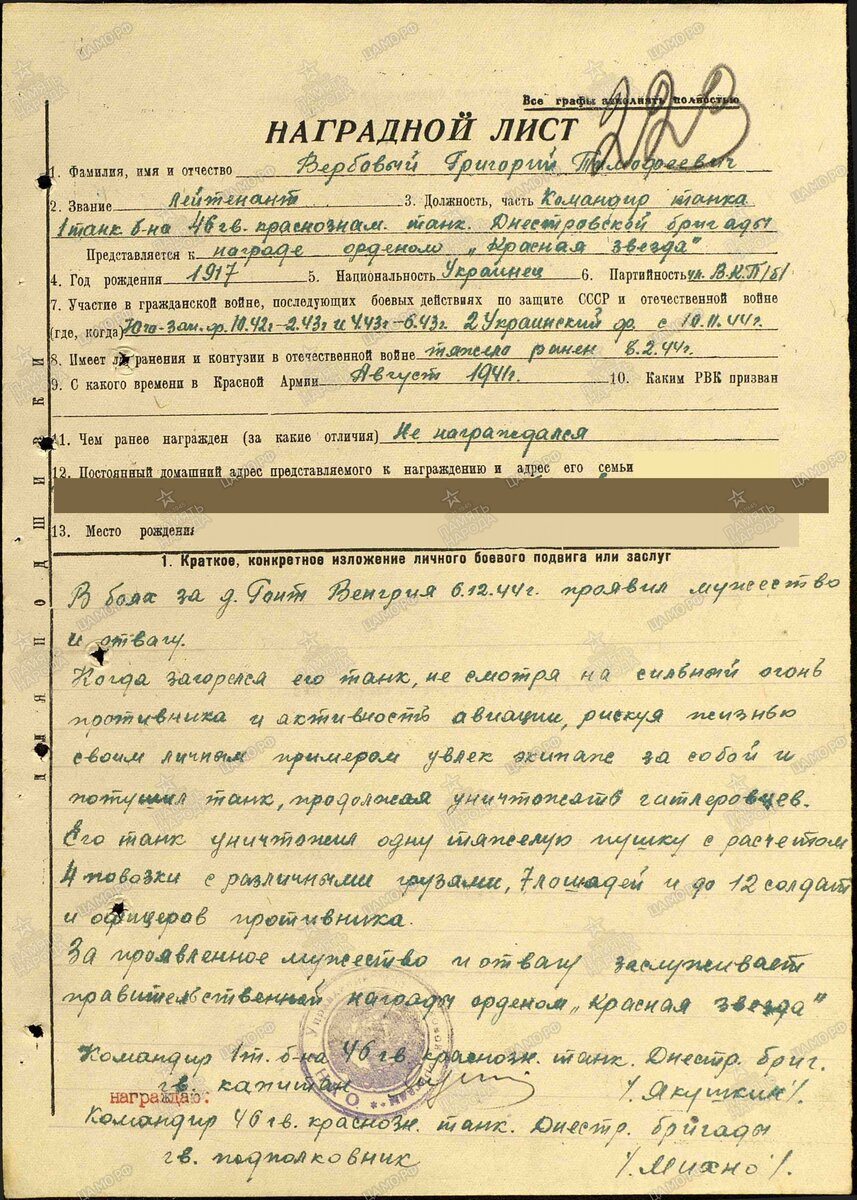 Все графы заполнять полностью
НАГРАДНОЙ ЛИСТ
1. Фамилия, имя и отчество Вербовый Григорий Тимофеевич
2. Звание Лейтенант 3. Должность, часть Командир танка
1 танк б-на 46 гв. краснознам. танк. Днестровской бригады
Представляется к награде орденом „Красная звезда"
4. Год рождения 1917 5. Национальность Украинец 6. Партийность чл. В.К.П/б/
7. Участие в гражданской войне, последующих боевых действиях по защите СССР и отечественной войне
(где, когда) Юго-Зап. ф. 10.42г-2.43г и 4.43г-6.43г. 2 Украинский ф. с 10.11.44г.
8. Имеет ли ранения и контузии в отечественной войне тяжело ранен 8.2.44г.
9. С какого времени в Красной Армии Август 1941г. 10. Каким РВК призван
11. Чем ранее награжден (за какие отличия) Не награждался
12. Постоянный домашний адрес представляемого к награждению и адрес его семьи
13. Место рождения
1. Краткое, конкретное изложение личного боевого подвига или заслуг
В боях за д. Гонт Венгрия 6.12.44г. проявил мужество
и отвагу.
Когда загорелся его танк, не смотря на сильный огонь
противника и активность авиации, рискуя жизнью
своим личным примером увлек экипаж за собой и
потушил танк, продолжая уничтожать гитлеровцев.
Его танк уничтожил одну тяжелую пушку с расчетом
4 повозки с различными грузами, 7 лошадей и до 12 солдат
и офицеров противника.
За проявленное мужество и отвагу заслуживает
правительственной награды орденом „Красная звезда"
Командир 1 т. б-на 46 гв краснозн. танк. Днестр. бриг.
гв. капитан /Якушкин/.
награждаю:
Командир 46 гв. краснозн. танк. Днестр. бригады
гв. подполковник /Михно/.
для подшивки
ПАМЯТЬ НАРОДА
ЦАМО.РФ